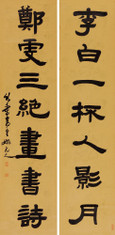 李白一杯人影月
鄭雯三絕畫書詩